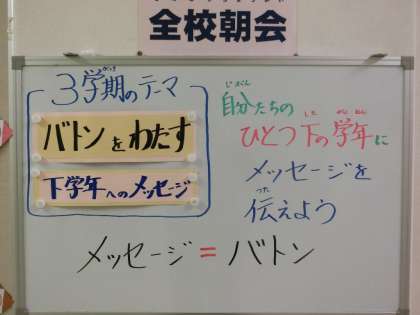 全校朝会
3学期のテーマ
バトンをわたす
下学年へのメッセージ
自分たちの
ひとつ下の学年に
メッセージを
伝えよう
メッセージ=バトン